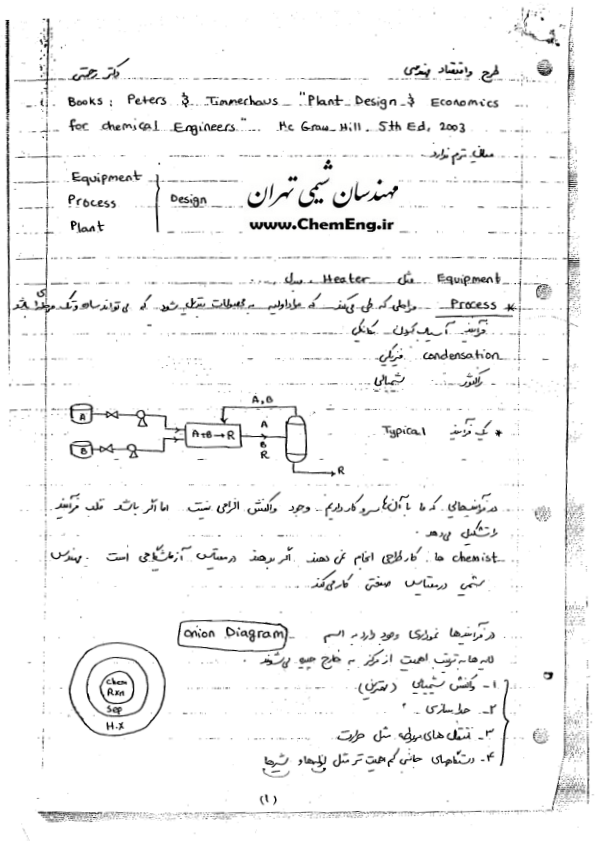 طرح و اقتصاد مهندسی
دکتر رحمتی
Books: Peters & Timmerhaus "Plant Design & Economics
for chemical Engineers" Mc Graw Hill, 5th Ed, 2003
میان ترم ندارد
Equipment
Process
Plant
Design
مهندسان شیمی تهران
www.ChemEng.ir
Equipment مثل Heater، مبدل ...
* Process مراحلی که طی می‌کند که مواد اولیه به محصولات تبدیل شود که می‌تواند ساده و تک مرحله‌ای باشد
فرآیند آسیاب کردن مکانیکی
condensation فیزیکی
راکتور شیمیایی
* یک فرآیند Typical
A
B
A+B→R
A, B
A
B
R
R
در فرآیندهایی که ما با آن‌ها سر و کار داریم وجود واکنش الزامی نیست اما اگر باشد قلب فرآیند
را تشکیل می‌دهد
chemist ها کار طراحی انجام نمی دهند اگر بدهند در مقیاس آزمایشگاهی است. مهندس
شیمی در مقیاس صنعتی کار می‌کند
در فرآیندها نموداری وجود دارد به اسم onion Diagram
لایه‌ها به ترتیب اهمیت از مرکز به خارج چیده می‌شوند
۱- واکنش شیمیایی (بهترین)
۲- جداسازی
۳- مثل حرارت
۴- دستگاههای جانبی کم اهمیت تر مثل پمپ‌ها و شیرها
Chem
Rxn
Sep
H.X
(۱)